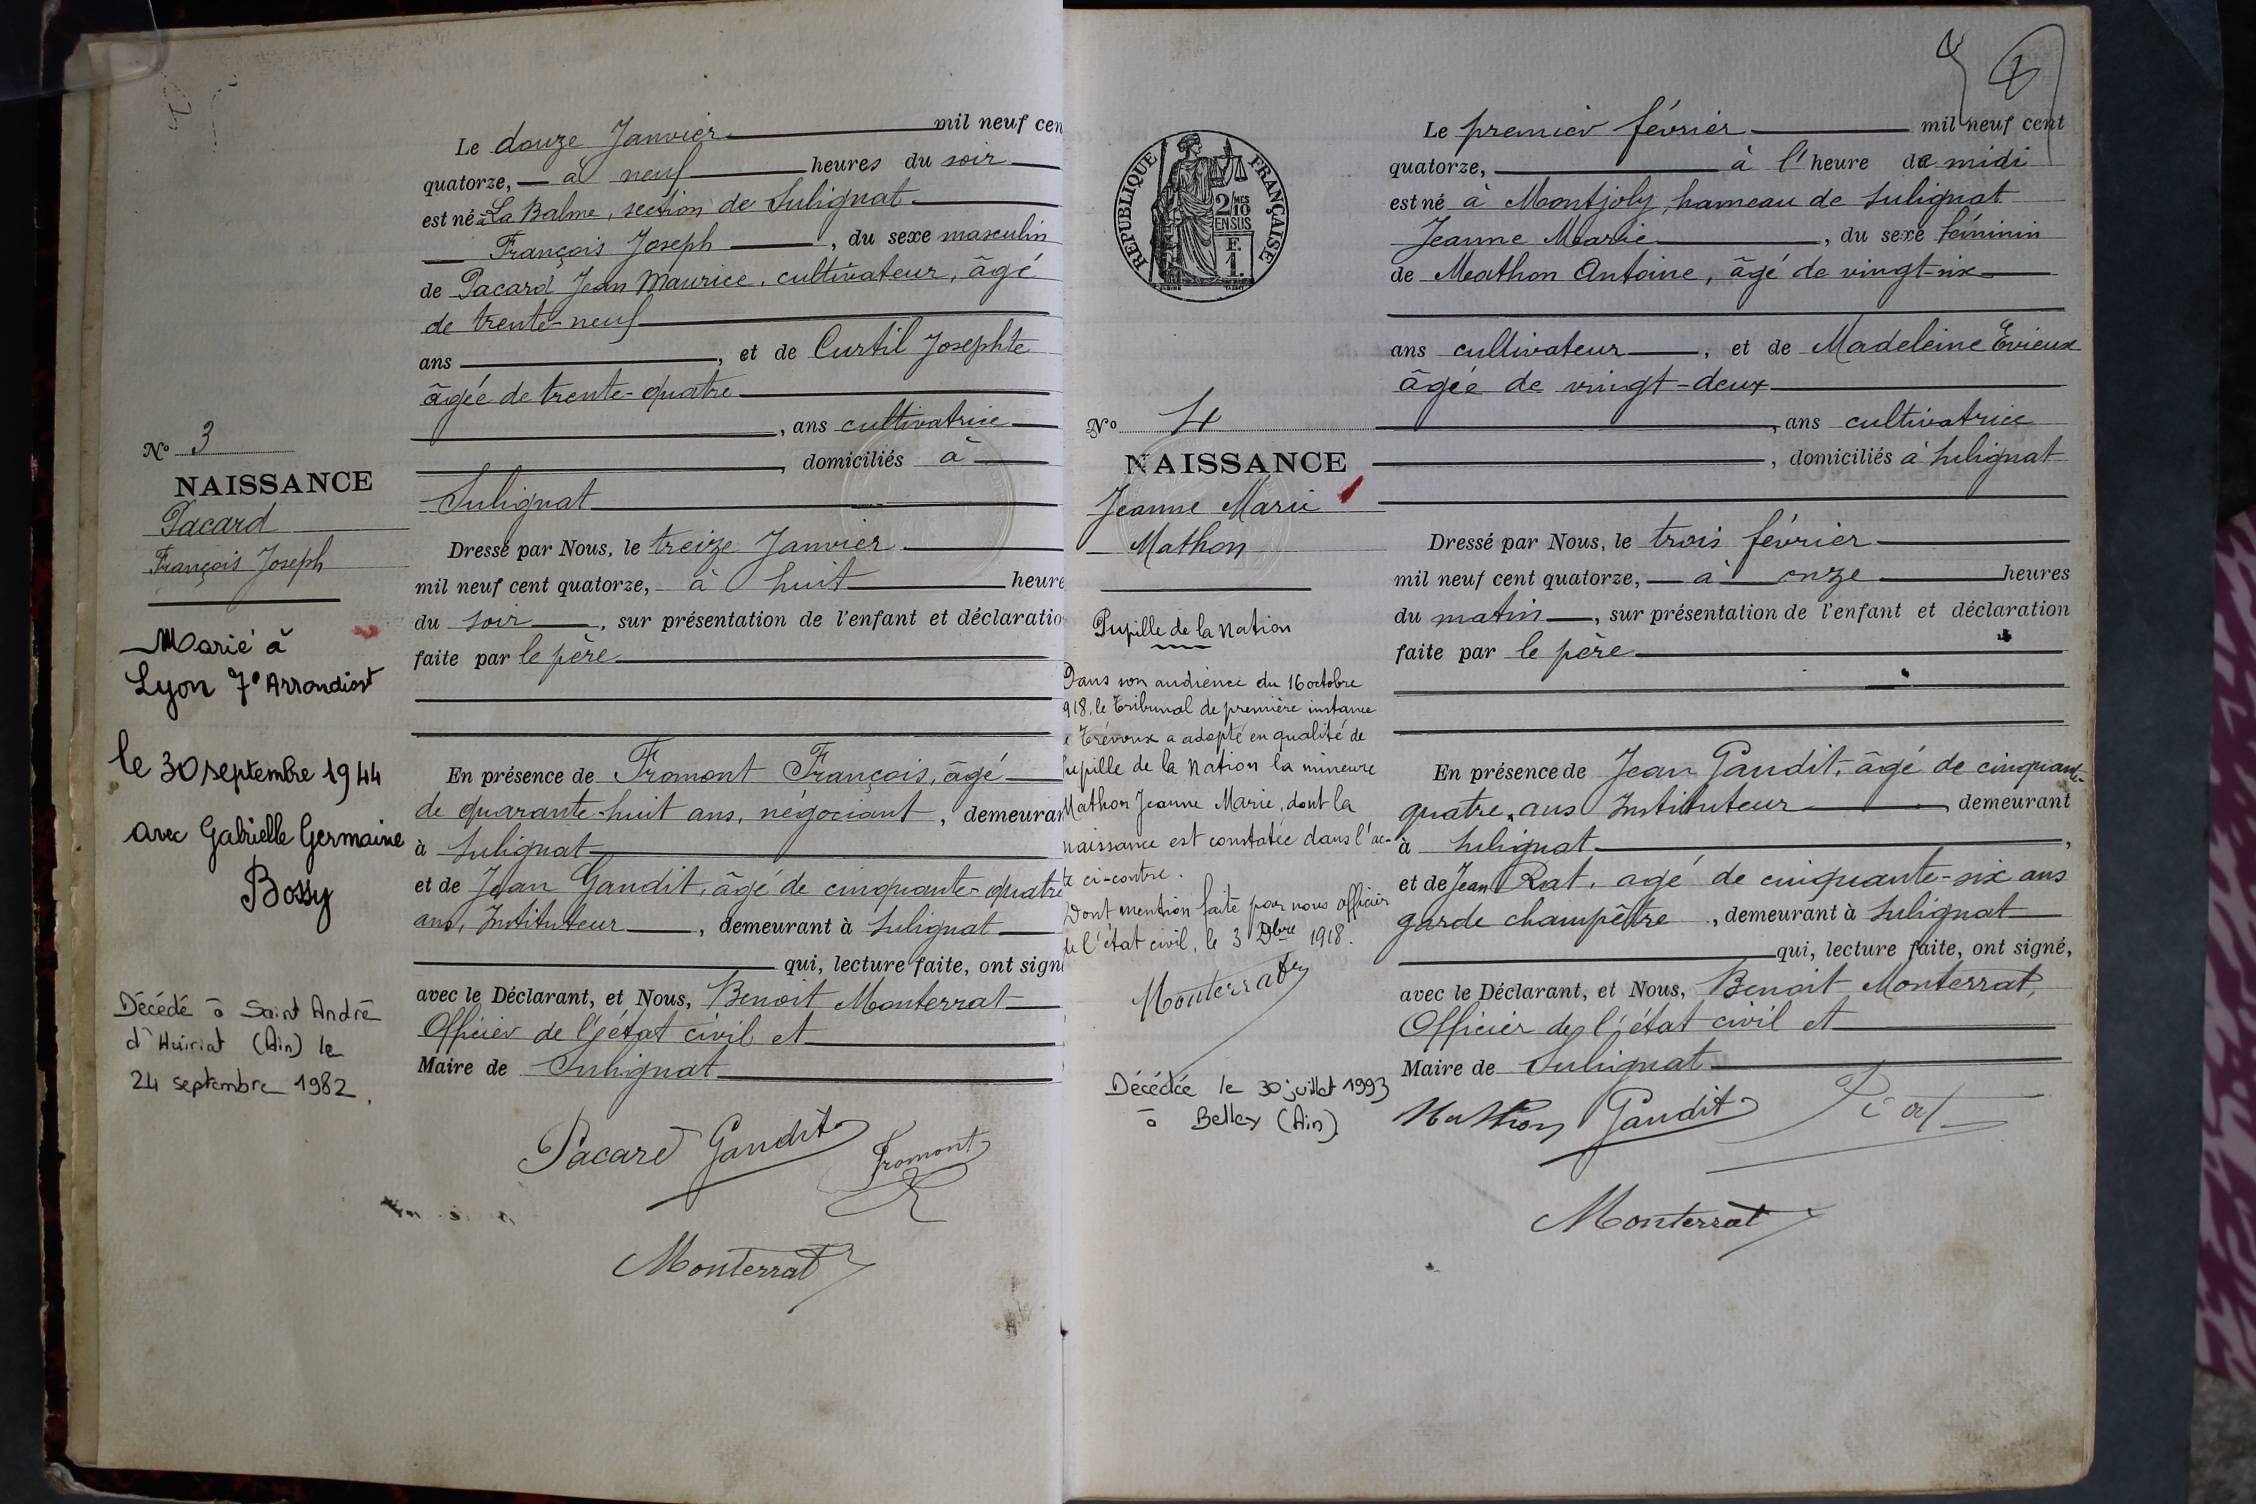 Le douze Janvier mil neuf cen
quatorze, à neuf heures du soir
est né à La Balme, section de Sulignat
François Joseph, du sexe masculin
de Pacard Jean Maurice, cultivateur, âgé
de trente-neuf
ans, et de Curtil Josephte
âgée de trente-quatre
, ans cultivatrice
, domiciliés à
Sulignat
Dressé par Nous, le treize Janvier
mil neuf cent quatorze, à huit heure
du soir, sur présentation de l'enfant et déclaratio
faite par le père
En présence de Fromont François, âgé
de quarante-huit ans, négociant, demeuran
à Sulignat
et de Jean Gaudit, âgé de cinquante-quatre
ans, Instituteur, demeurant à Sulignat
qui, lecture faite, ont sign
avec le Déclarant, et Nous, Benoit Monterrat
Officier de l'état civil et
Maire de Sulignat
Pacard Gaudit Fromont
Monterrat
No 3
NAISSANCE
Pacard
François Joseph
Marié à
Lyon 7e Arrondist
le 30 septembre 1944
avec Gabrielle Germaine
Bossy
Décédé à Saint André
d'Huiriat (Ain) le
24 septembre 1982.
REPUBLIQUE FRANÇAISE
2/10 MES
EN SUS
F.
1.
No 4
NAISSANCE
Jeanne Marie
Mathon
Pupille de la Nation
Dans son audience du 16 octobre
918, le Tribunal de première instance
e Trévoux a adopté en qualité de
upille de la Nation la mineure
Mathon Jeanne Marie, dont la
naissance est constatée dans l'ac-
te ci-contre.
Dont mention faite par nous officier
de l'état civil, le 3 Dbre 1918.
Monterrat
Décédée le 30 juillet 1993
à Belley (Ain)
Le premier février mil neuf cent
quatorze, à l'heure de midi
est né à Montjoly, hameau de Sulignat
Jeanne Marie, du sexe féminin
de Mathon Antoine, âgé de vingt-six
ans cultivateur, et de Madeleine Evieux
âgée de vingt-deux
, ans cultivatrice
, domiciliés à Sulignat
Dressé par Nous, le trois février
mil neuf cent quatorze, à onze heures
du matin, sur présentation de l'enfant et déclaration
faite par le père
En présence de Jean Gaudit, âgé de cinquante-
quatre ans Instituteur demeurant
à Sulignat,
et de Jean Rat, agé de cinquante-six ans
garde champêtre, demeurant à Sulignat
qui, lecture faite, ont signé,
avec le Déclarant, et Nous, Benoit Monterrat,
Officier de l'état civil et
Maire de Sulignat
Mathon Gaudit
Monterrat